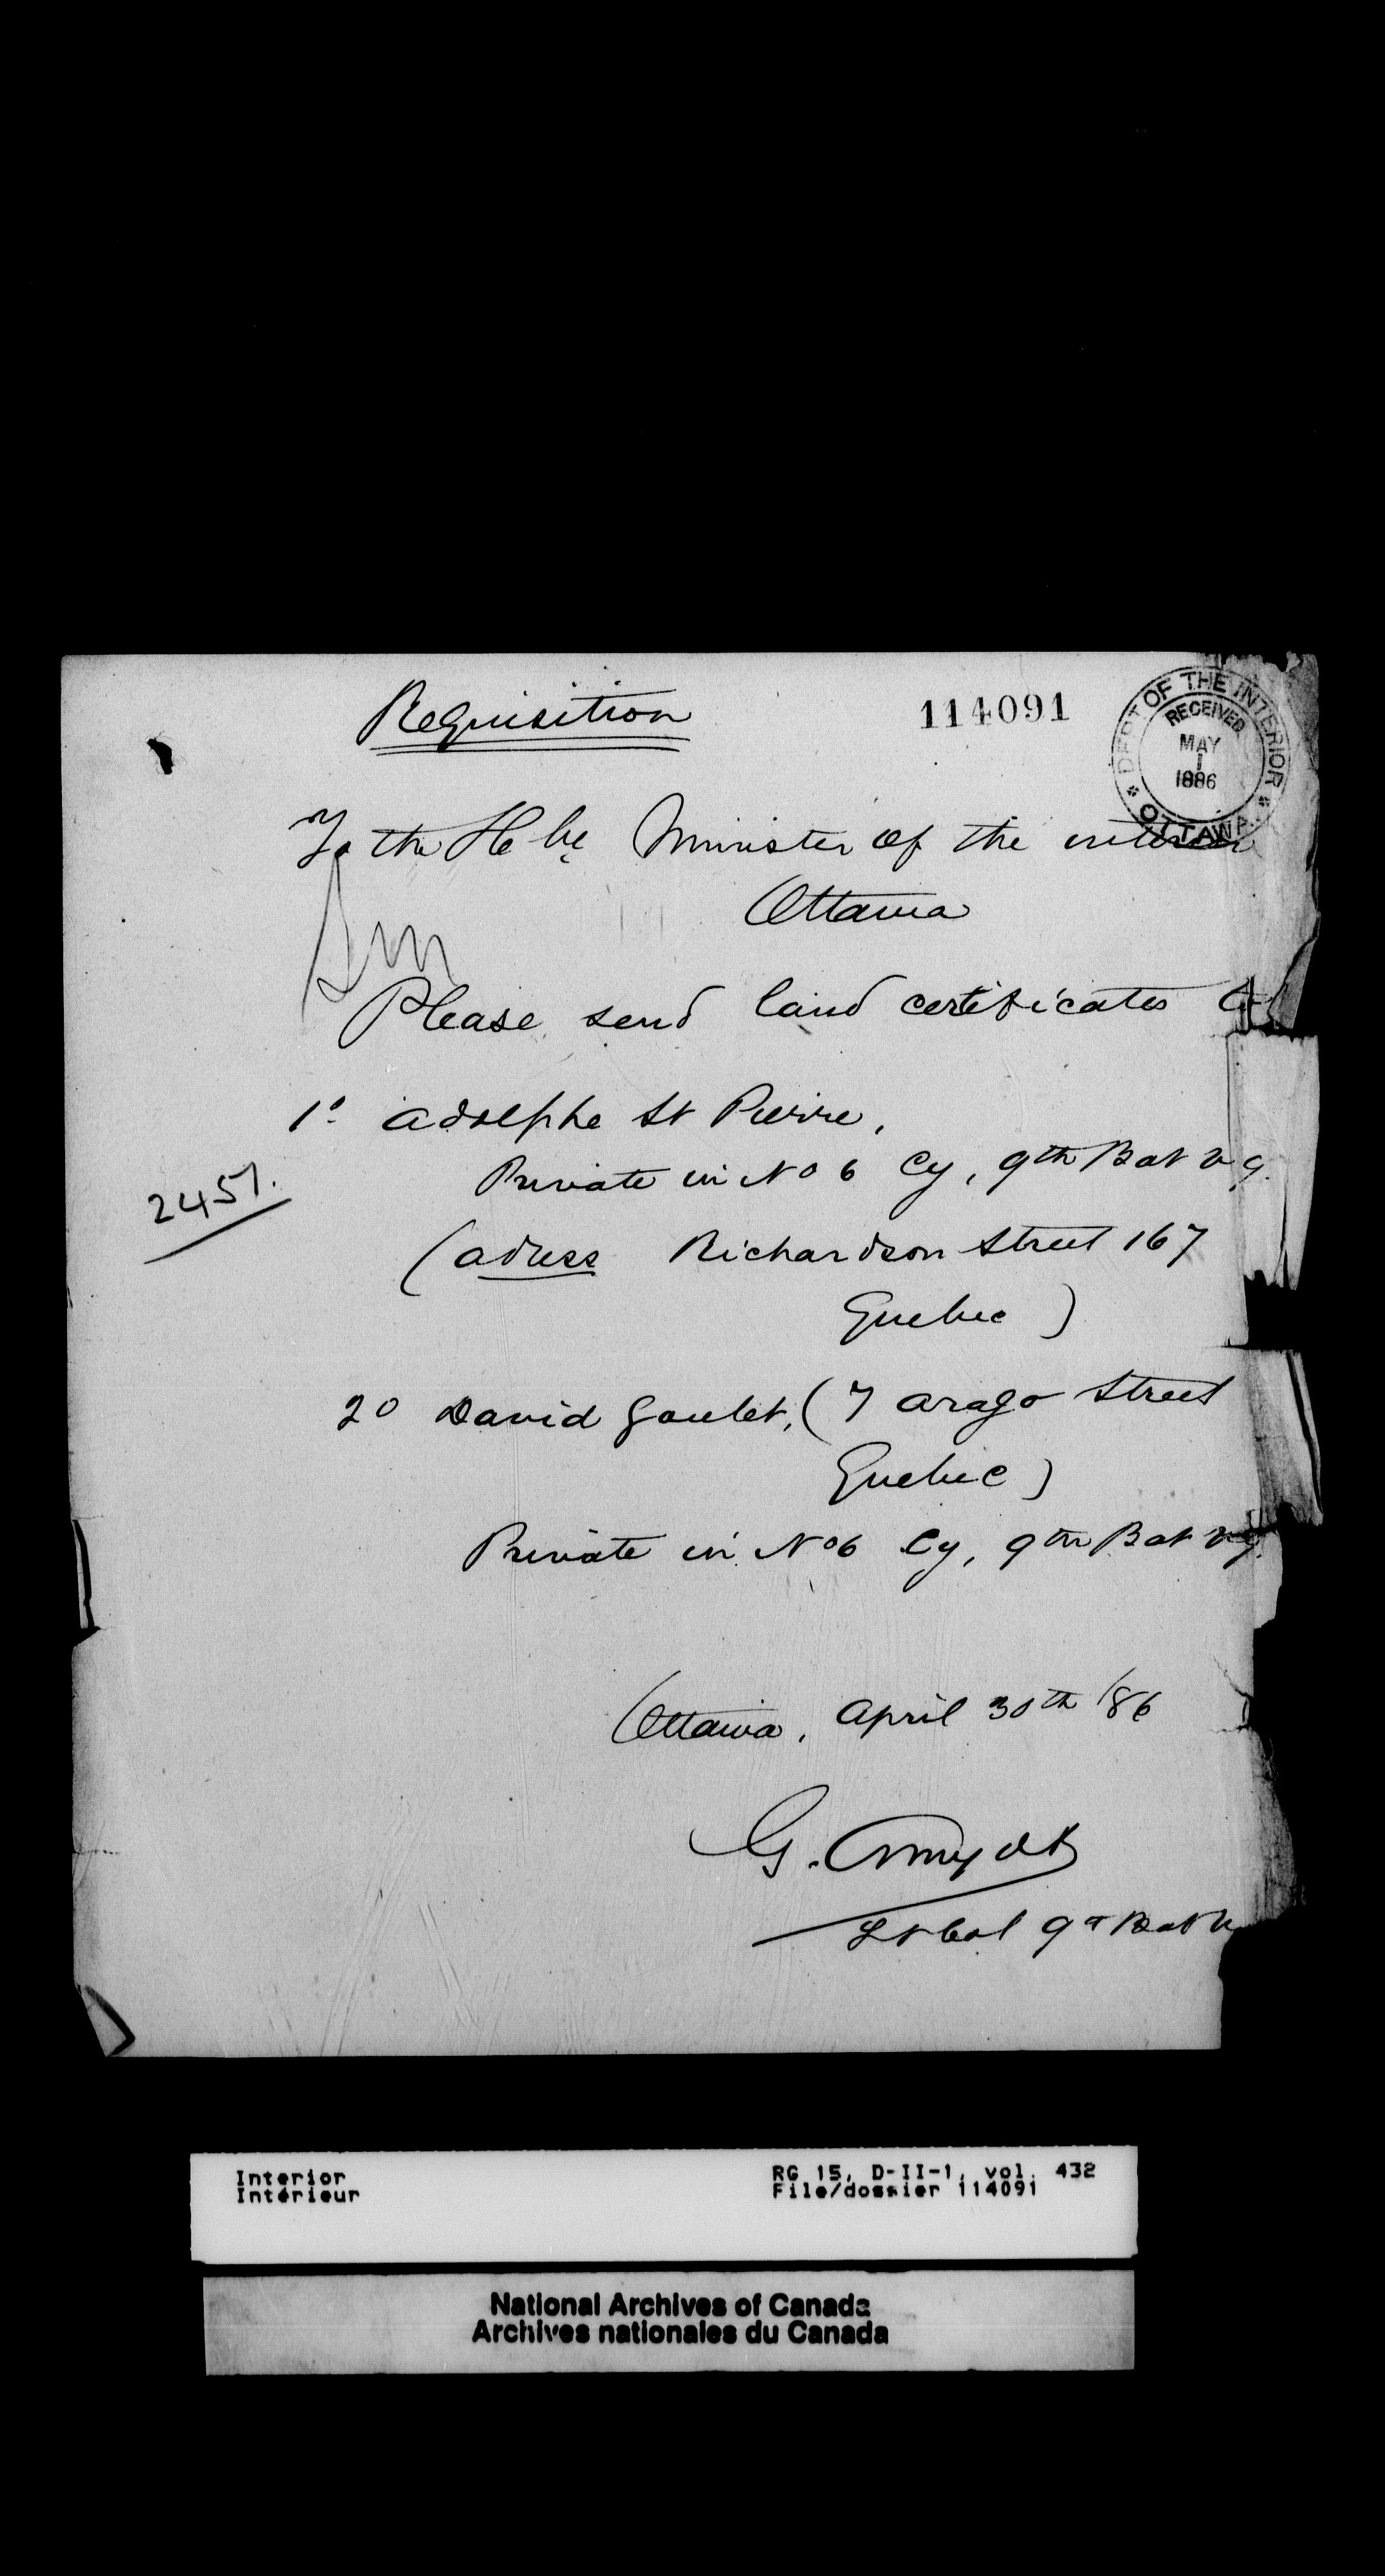 Requisition
114091
DEPT OF THE INTERIOR
RECEIVED
MAY
1
1886
OTTAWA
To the Hble Minister of the interior
Ottawa
Please send land certificates to
1o adolphe St Pierre,
Private in No 6 Cy, 9th Bat v g.
2457.
(adress Richardson Street 167
Quebec )
2o David Goulet, ( 7 arago Street
Quebec )
Private in No 6 Cy, 9th Bat v g.
Ottawa, april 30th /86
G. Amyot
Lt Col 9th Bat
Interior
Intérieur
RG 15, D-II-1, vol. 432
File/dossier 114091
National Archives of Canada
Archives nationales du Canada